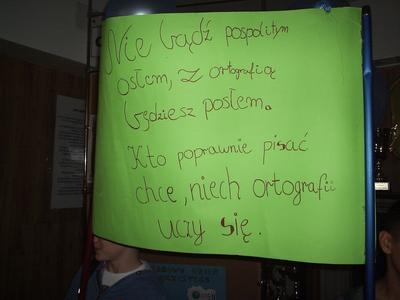 Nie bądź pospolitym
osłem, z ortografią
będziesz posłem.
Kto poprawnie pisać
chce, niech ortografii
uczy się.